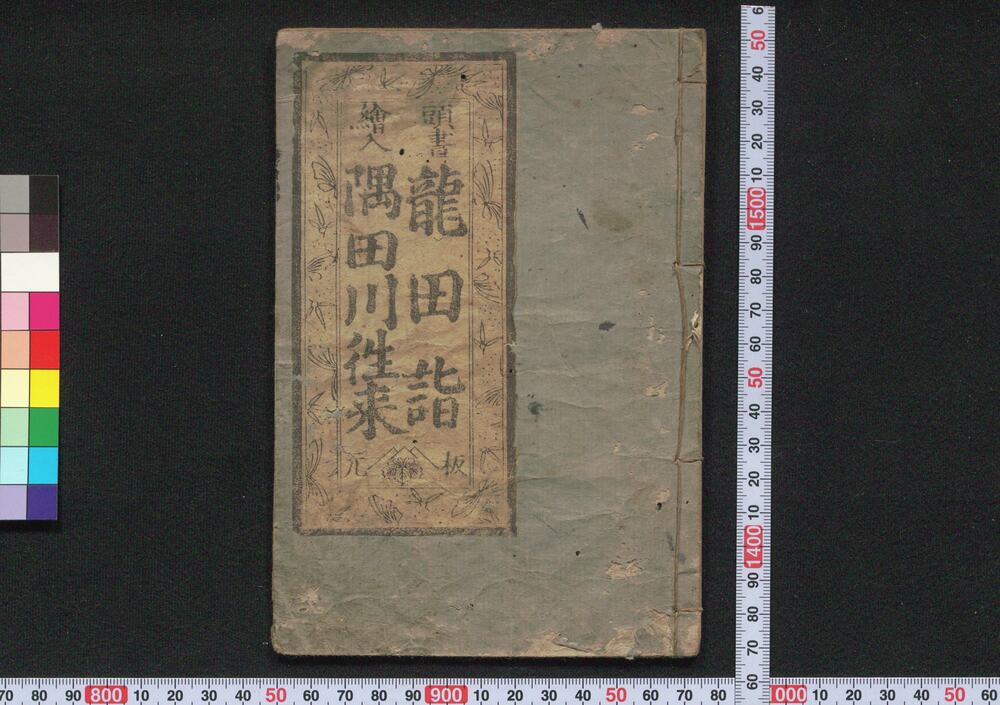 頭書 龍田詣
繪入 隅田川徃来
板元
6
50
40
30
20
10
1500
90
80
70
60
50
40
30
20
10
1400
90
80
70
60
70 80 90 800 10 20 30 40 50 60 70 80 90 900 10 20 30 40 50 60 70 80 000 10 20 30 40 50 60